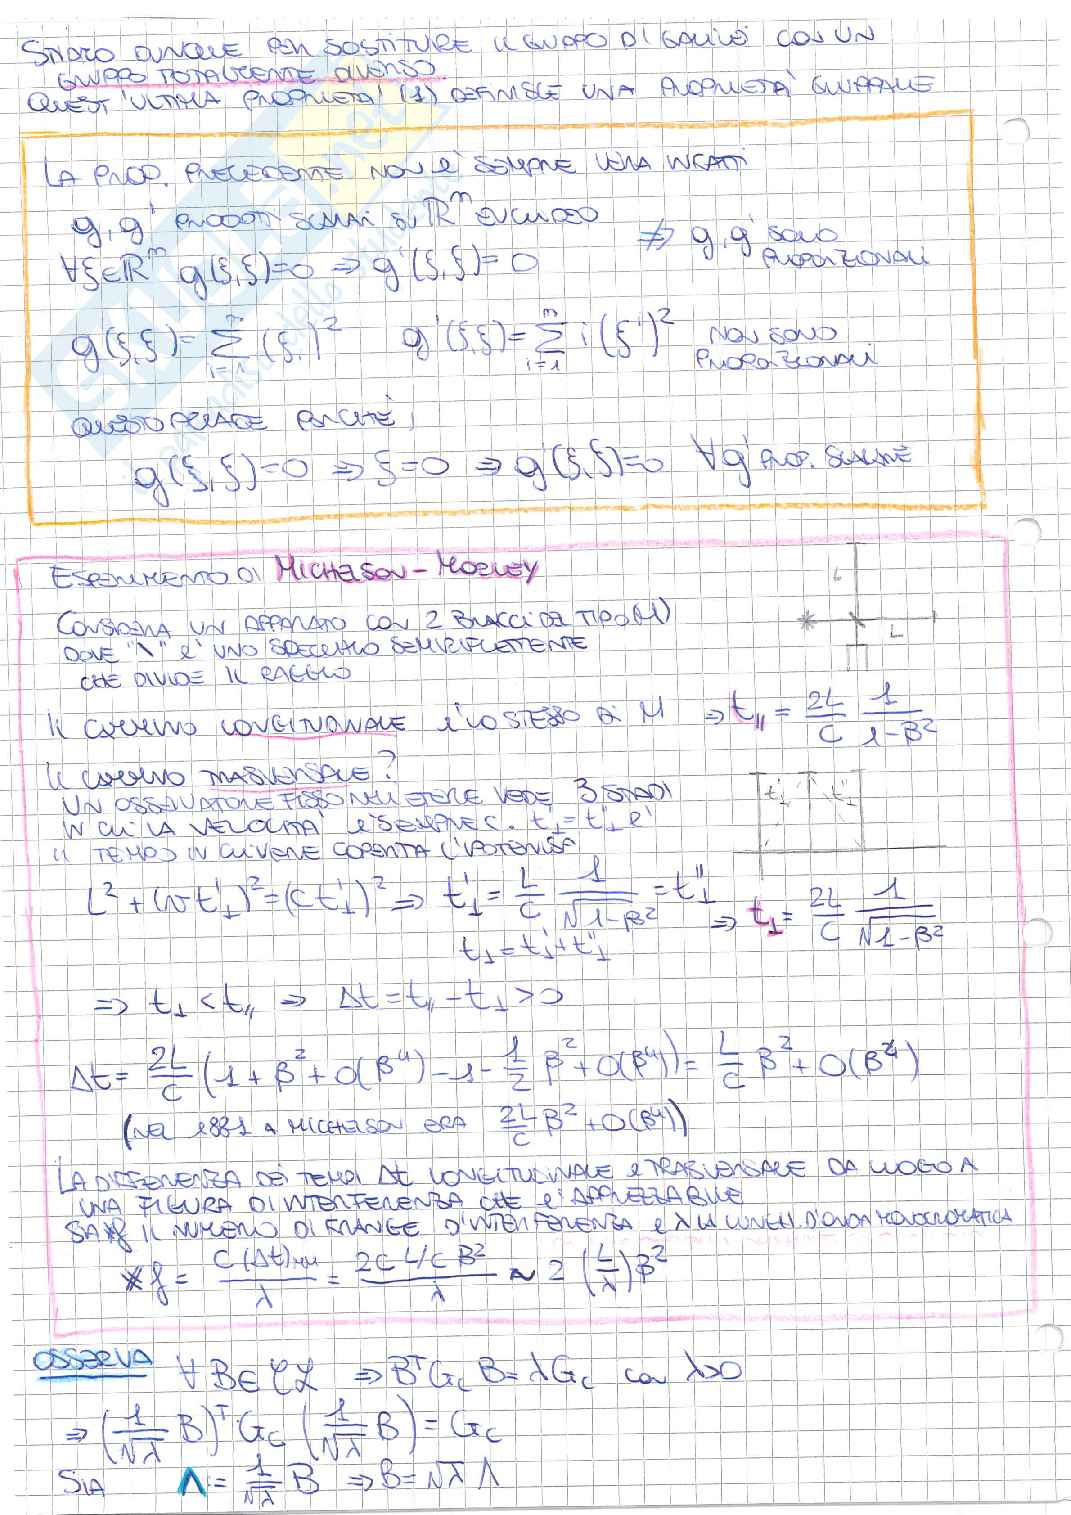 STIAMO DUNQUE PER SOSTITUIRE IL GRUPPO DI GALILEI CON UN
GRUPPO TOTALMENTE DIVERSO.
QUEST'ULTIMA PROPRIETA' (1) DEFINISCE UNA PROPRIETA' GRUPPALE
LA PROP. PRECEDENTE NON E' SEMPRE VERA INFATTI
g, g' PRODOTTI SCALARI SU ℝ^m EUCLIDEO
⇏ g, g' SONO PROPORZIONALI
∀ξ∈ℝ^m g(ξ,ξ)=0 ⇒ g'(ξ,ξ)=0
g(ξ,ξ)=∑_{i=1}^{m} (ξ^i)^2 g'(ξ,ξ)=∑_{i=1}^{m} i(ξ^i)^2 NON SONO PROPORZIONALI
QUESTO ACCADE PERCHÈ,
g(ξ,ξ)=0 ⇒ ξ=0 ⇒ g'(ξ,ξ)=0 ∀g' PROD. SCALARE
ESPERIMENTO DI MICHELSON-MORLEY
L
L
CONSIDERA UN APPARATO CON 2 BRACCI DEL TIPO (M)
DOVE "\" E' UNO SPECCHIO SEMIRIFLETTENTE
CHE DIVIDE IL RAGGIO
IL CAMMINO LONGITUDINALE E' LO STESSO DI M ⇒ t_∥ = 2L/C 1/(1-β^2)
IL CAMMINO TRASVERSALE?
UN OSSERVATORE FISSO NELL'ETERE VEDE 3 STADI
t'_⊥ t''_⊥
IN CUI LA VELOCITA' E' SEMPRE C. t'_⊥ = t''_⊥ E'
IL TEMPO IN CUI VIENE COPERTA L'IPOTENUSA
L^2 + (v t'_⊥)^2 = (c t'_⊥)^2 ⇒ t'_⊥ = L/C 1/√(1-β^2) = t''_⊥ ⇒ t_⊥ = 2L/C 1/√(1-β^2)
t_⊥ = t'_⊥ + t''_⊥
⇒ t_⊥ < t_∥ ⇒ Δt = t_∥ - t_⊥ > 0
Δt = 2L/C (1 + β^2 + O(β^4) - 1 - 1/2 β^2 + O(β^4)) = L/C β^2 + O(β^4)
(NEL 1881 A MICHELSON ERA 2L/C β^2 + O(β^4))
LA DIFFERENZA DEI TEMPI Δt LONGITUDINALE E TRASVERSALE DA LUOGO A
UNA FIGURA DI INTERFERENZA CHE E' APPREZZABILE
SIA *f IL NUMERO DI FRANGE D'INTERFERENZA E λ LA LUNGH. D'ONDA MONOCROMATICA
*f = C(Δt)_{MM}/λ = 2C L/C β^2/λ ~ 2 (L/λ) β^2
OSSERVA ∀ B∈ 𝒞ℒ ⇒ B^T G_C B = λ G_C CON λ>0
⇒ (1/√λ B)^T G_C (1/√λ B) = G_C
SIA Λ := 1/√λ B ⇒ B = √λ Λ